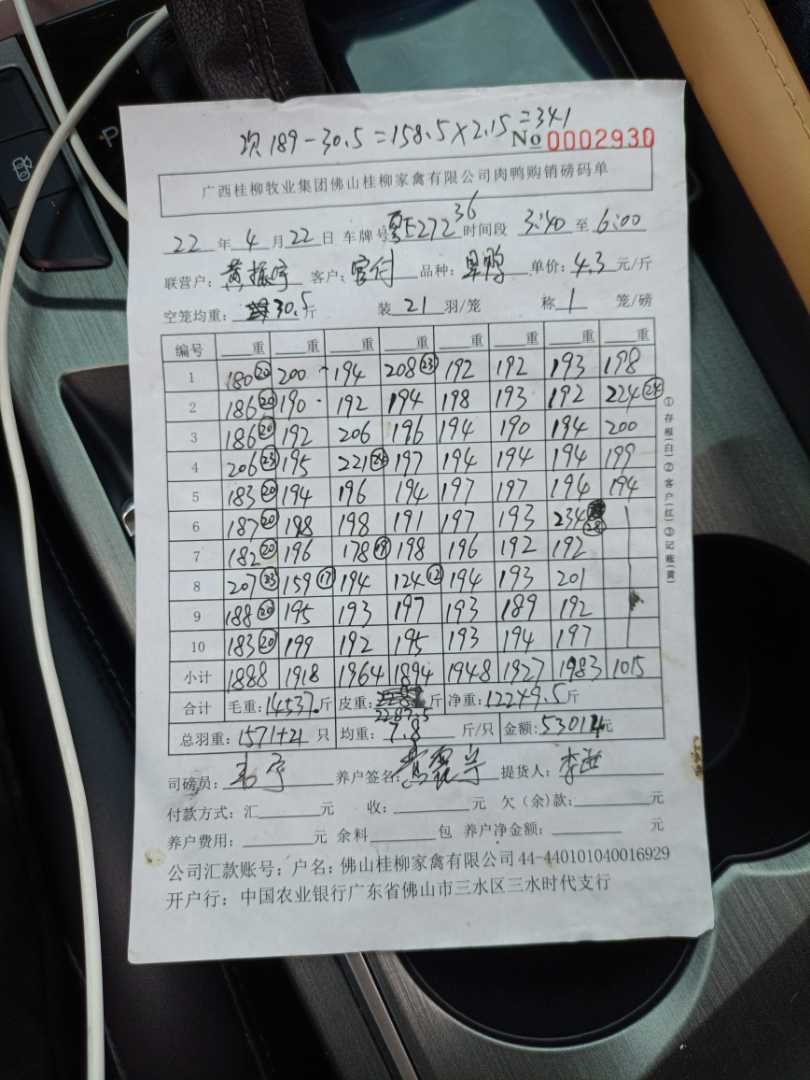 次189-30.5=158.5×2.15=341
No 0002930
广西桂柳牧业集团佛山桂柳家禽有限公司肉鸭购销磅码单
22年4月22日 车牌号 粤E27236 时间段 3:40 至 6:00
联营户: 黄 客户: 官付 品种: 鸭 单价: 4.3元/斤
空笼均重: 30.5斤 装 21 羽/笼 称 1 笼/磅
编号 重 重 重 重 重 重 重 重
1 180⑳ 200 194 208㉓ 192 192 193 198
2 186⑳ 190 192 194 198 193 192 224㉔
3 186⑳ 192 206 196 194 190 194 200
4 206㉓ 195 221㉔ 197 194 194 194 199
5 183⑳ 194 196 194 197 197 194 194
6 187⑳ 198 198 191 197 193 234
7 182⑳ 196 178 198 196 192 192
8 207㉓ 159⑰ 194 124⑫ 194 193 201
9 188⑳ 195 193 197 193 189 192
10 183⑳ 199 192 195 193 194 197
小计 1888 1918 1964 1894 1948 1927 1983 1015
合计 毛重: 14537斤 皮重: 2287.5斤 净重: 12249.5斤
总羽重: 1571+21只 均重: 7.8斤/只 金额: 53014元
司磅员: 养户签名: 提货人: 李
付款方式: 汇 元 收: 元 欠(余)款: 元
养户费用: 元 余料 包 养户净金额: 元
公司汇款账号: 户名: 佛山桂柳家禽有限公司 44-440101040016929
开户行: 中国农业银行广东省佛山市三水区三水时代支行
①存根(白)②客户(红)③记账(黄)
P